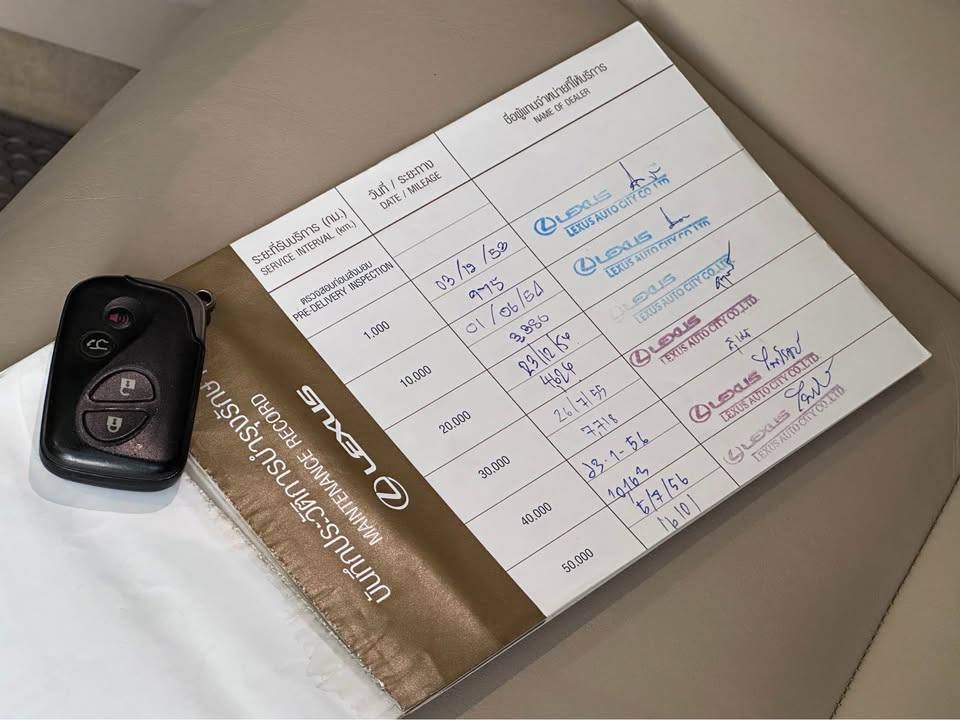 ระยะที่รับบริการ (กม.)
SERVICE INTERVAL (km.)
วันที่ / ระยะทาง
DATE / MILEAGE
ชื่อผู้แทนจำหน่ายที่ให้บริการ
NAME OF DEALER
ตรวจสอบก่อนส่งมอบ
PRE-DELIVERY INSPECTION
03/12/53
975
LEXUS
LEXUS AUTO CITY CO.,LTD
1,000
01/06/54
3,386
LEXUS
LEXUS AUTO CITY CO.,LTD
10,000
23/12/54
4624
LEXUS
LEXUS AUTO CITY CO.,LTD
20,000
26/7/55
7,718
LEXUS
LEXUS AUTO CITY CO.,LTD
30,000
23-1-56
10163
LEXUS
LEXUS AUTO CITY CO.,LTD
40,000
5/7/56
LEXUS
LEXUS AUTO CITY CO.,LTD
50,000
LEXUS
MAINTENANCE RECORD
บันทึกประวัติการบำรุงรักษา